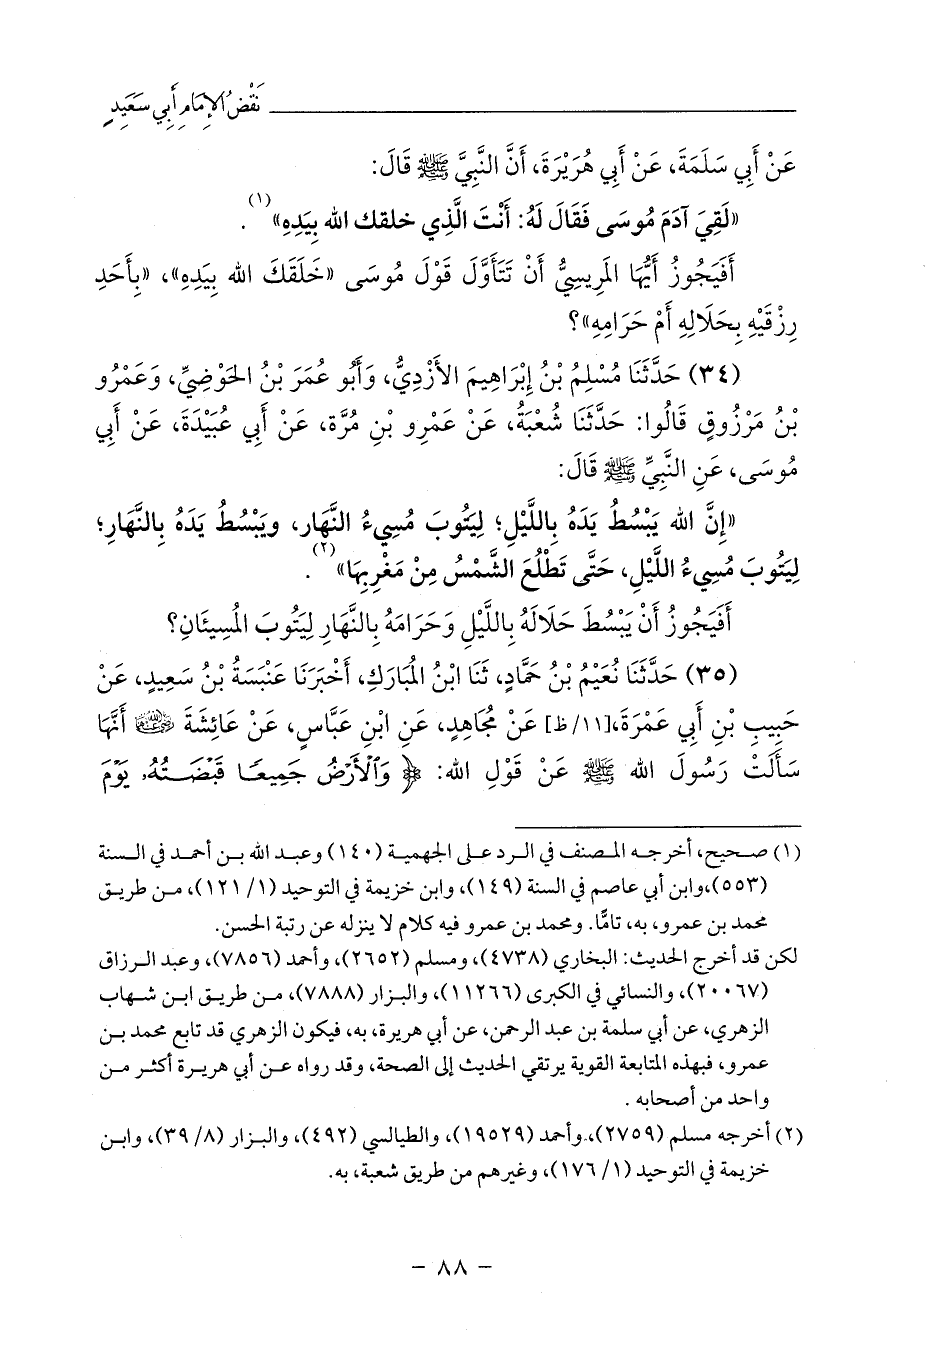 نَقْضُ الإِمَامِ أَبِي سَعِيدٍ
عَنْ أَبِي سَلَمَةَ، عَنْ أَبِي هُرَيْرَةَ، أَنَّ النَّبِيَّ ﷺ قَالَ:
«لَقِيَ آدَمَ مُوسَى فَقَالَ لَهُ: أَنْتَ الَّذِي خلقك الله بِيَدِهِ»(١).
أَفَيَجُوزُ أَيُّهَا المَرِيسِيُّ أَنْ تَتَأَوَّلَ قَوْلَ مُوسَى «خَلَقَكَ الله بِيَدِهِ»، «بِأَحَدِ
رِزْقَيْهِ بِحَلَالِهِ أَمْ حَرَامِهِ»؟
(٣٤) حَدَّثَنَا مُسْلِمُ بْنُ إِبْرَاهِيمَ الأَزْدِيُّ، وَأَبُو عُمَرَ بْنُ الحَوْضِيِّ، وَعَمْرُو
بْنُ مَرْزُوقٍ قَالُوا: حَدَّثَنَا شُعْبَةُ، عَنْ عَمْرِو بْنِ مُرَّة، عَنْ أَبِي عُبَيْدَةَ، عَنْ أَبِي
مُوسَى، عَنِ النَّبِيِّ ﷺ قَالَ:
«إِنَّ الله يَبْسُطُ يَدَهُ بِاللَّيْلِ؛ لِيَتُوبَ مُسِيءُ النَّهَارِ، ويَبْسُطُ يَدَهُ بِالنَّهَارِ؛
لِيَتُوبَ مُسِيءُ اللَّيْلِ، حَتَّى تَطْلُعَ الشَّمْسُ مِنْ مَغْرِبِهَا»(٢).
أَفَيَجُوزُ أَنْ يَبْسُطَ حَلَالَهُ بِاللَّيْلِ وَحَرَامَهُ بِالنَّهَارِ لِيَتُوبَ المُسِيئَانِ؟
(٣٥) حَدَّثَنَا نُعَيْمُ بْنُ حَمَّادٍ، ثَنَا ابْنُ المُبَارَكِ، أَخْبَرَنَا عَنْبَسَةُ بْنُ سَعِيدٍ، عَنْ
حَبِيبِ بْنِ أَبِي عَمْرَةَ،[١١/ظ] عَنْ مُجَاهِدٍ، عَنِ ابْنِ عَبَّاسٍ، عَنْ عَائِشَةَ ﵂ أَنَّهَا
سَأَلَتْ رَسُولَ الله ﷺ عَنْ قَوْلِ الله: ﴿وَٱلْأَرْضُ جَمِيعًا قَبْضَتُهُۥ يَوْمَ
(١) صحيح، أخرجه المصنف في الرد على الجهمية (١٤٠) وعبد الله بن أحمد في السنة
(٥٥٣)،وابن أبي عاصم في السنة (١٤٩)، وابن خزيمة في التوحيد (١/ ١٢١)، من طريق
محمد بن عمرو، به، تامًّا. ومحمد بن عمرو فيه كلام لا ينزله عن رتبة الحسن.
لكن قد أخرج الحديث: البخاري (٤٧٣٨)، ومسلم (٢٦٥٢)، وأحمد (٧٨٥٦)، وعبد الرزاق
(٢٠٠٦٧)، والنسائي في الكبرى (١١٢٦٦)، والبزار (٧٨٨٨)، من طريق ابن شهاب
الزهري، عن أبي سلمة بن عبد الرحمن، عن أبي هريرة، به، فيكون الزهري قد تابع محمد بن
عمرو، فبهذه المتابعة القوية يرتقي الحديث إلى الصحة، وقد رواه عن أبي هريرة أكثر من
واحد من أصحابه .
(٢) أخرجه مسلم (٢٧٥٩)، وأحمد (١٩٥٢٩)، والطيالسي (٤٩٢)، والبزار (٨/ ٣٩)، وابن
خزيمة في التوحيد (١/ ١٧٦)، وغيرهم من طريق شعبة، به.
- ٨٨ -